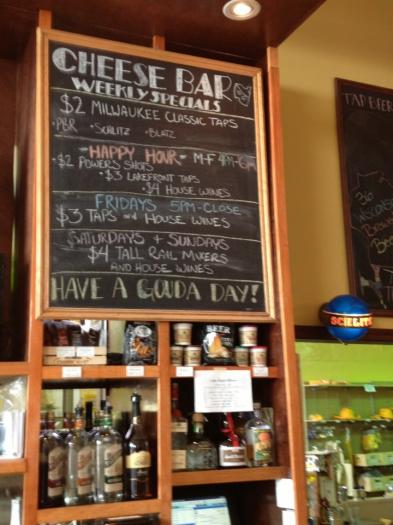 CHEESE BAR
WEEKLY SPECIALS
$2 MILWAUKEE CLASSIC TAPS
• PBR • SCHLITZ • BLATZ
- HAPPY HOUR - M-F 4PM-6PM
• $2 POWERS SHOTS
• $3 LAKEFRONT TAPS
• $4 HOUSE WINES
FRIDAYS 5PM-CLOSE
$3 TAPS AND HOUSE WINES
SATURDAYS + SUNDAYS
$4 TALL RAIL MIXERS
AND HOUSE WINES
HAVE A GOUDA DAY!
TAP BEER
36
WISCONSIN
SCHLITZ
BEER